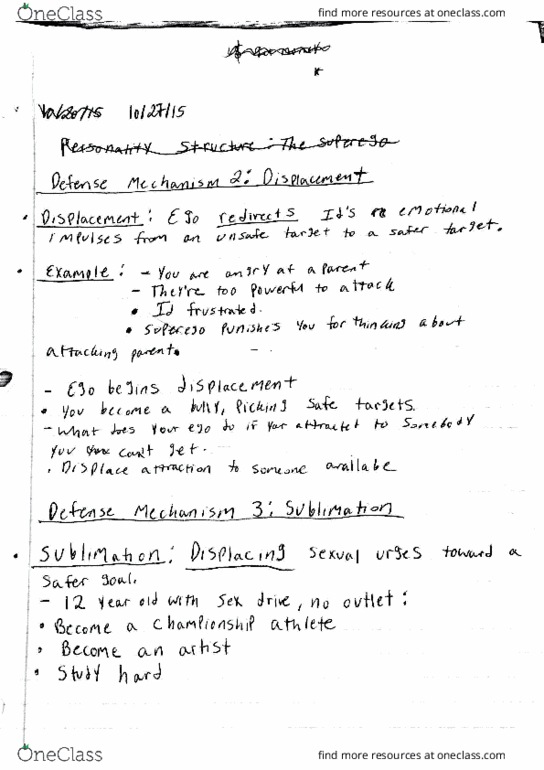 OneClass find more resources at oneclass.com
10/27/15
Personality Structure: The Superego
Defense Mechanism 2: Displacement
• Displacement: Ego redirects Id's emotional
impulses from an unsafe target to a safer target.
• Example: - You are angry at a parent
- They're too powerful to attack
• Id frustrated.
• Superego punishes you for thinking about
attacking parent.
- Ego begins displacement
• You become a bully, picking safe targets.
- What does your ego do if your attractet to somebody
you can't get.
• Displace attraction to someone availabe
Defense Mechanism 3: Sublimation
• Sublimation: Displacing sexual urges toward a
safer goal.
- 12 year old with sex drive, no outlet:
• Become a championship athlete
• Become an artist
• Study hard
OneClass find more resources at oneclass.com